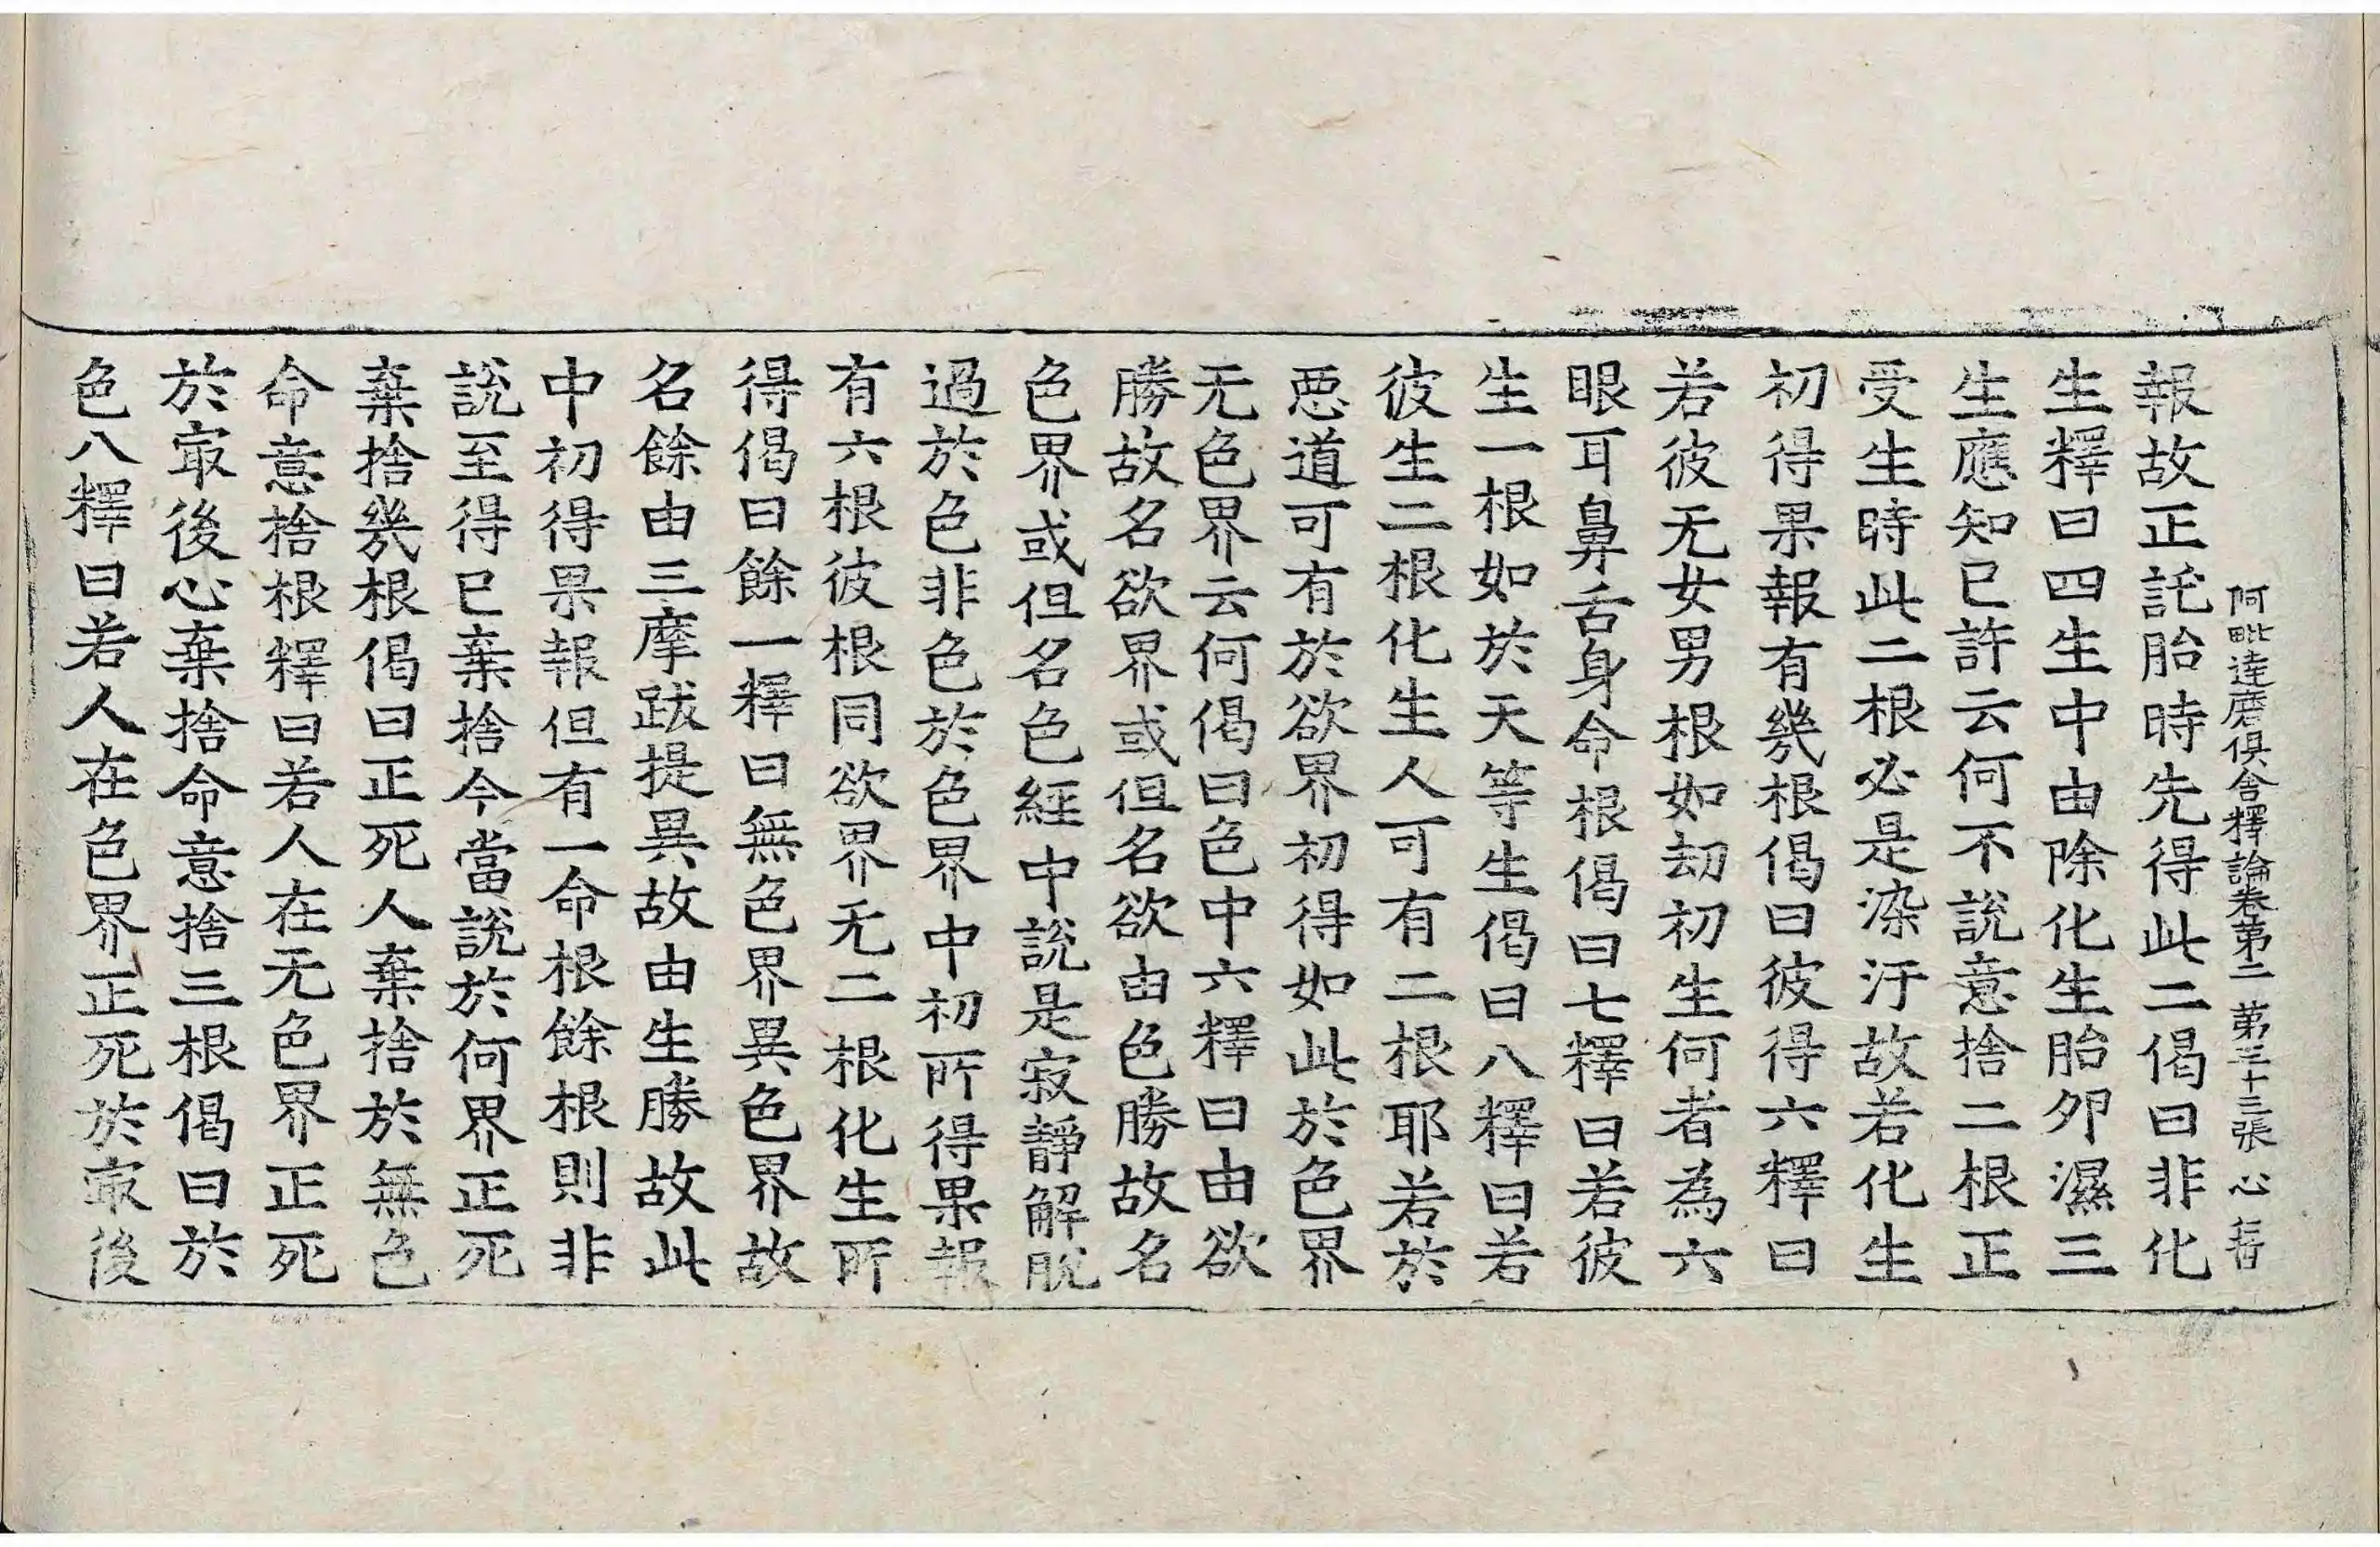 阿毗達磨俱舍釋論卷第二 第三十三張 心
報故正託胎時先得此二偈曰非化
生釋曰四生中由除化生胎夘濕三
生應知已許云何不說意捨二根正
受生時此二根必是染汙故若化生
初得果報有幾根偈曰彼得六釋曰
若彼无女男根如劫初生何者為六
眼耳鼻舌身命根偈曰七釋曰若彼
生一根如於天等生偈曰八釋曰若
彼生二根化生人可有二根耶若於
悪道可有於欲界初得如此於色界
无色界云何偈曰色中六釋曰由欲
勝故名欲界或但名欲由色勝故名
色界或但名色經中說是寂靜解脫
過於色非色於色界中初所得果報
有六根彼根同欲界无二根化生所
得偈曰餘一釋曰無色界異色界故
名餘由三摩跋提異故由生勝故此
中初得果報但有一命根餘根則非
說至得已棄捨今當說於何界正死
棄捨幾根偈曰正死人棄捨於無色
命意捨根釋曰若人在无色界正死
於㝡後心棄捨命意捨三根偈曰於
色八釋曰若人在色界正死於㝡後